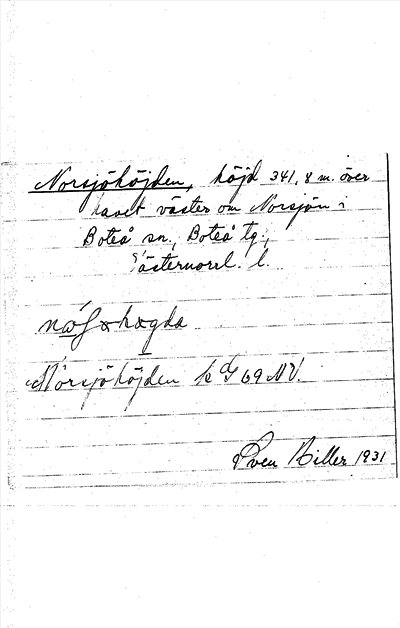 Norsjöhöjden, höjd 341,8 m. över
havet väster om Norsjön i
Boteå sn., Boteå tg.,
Västernorrl. l.
Norsjöhöjden k G 69 NV.
Sven Biller 1931